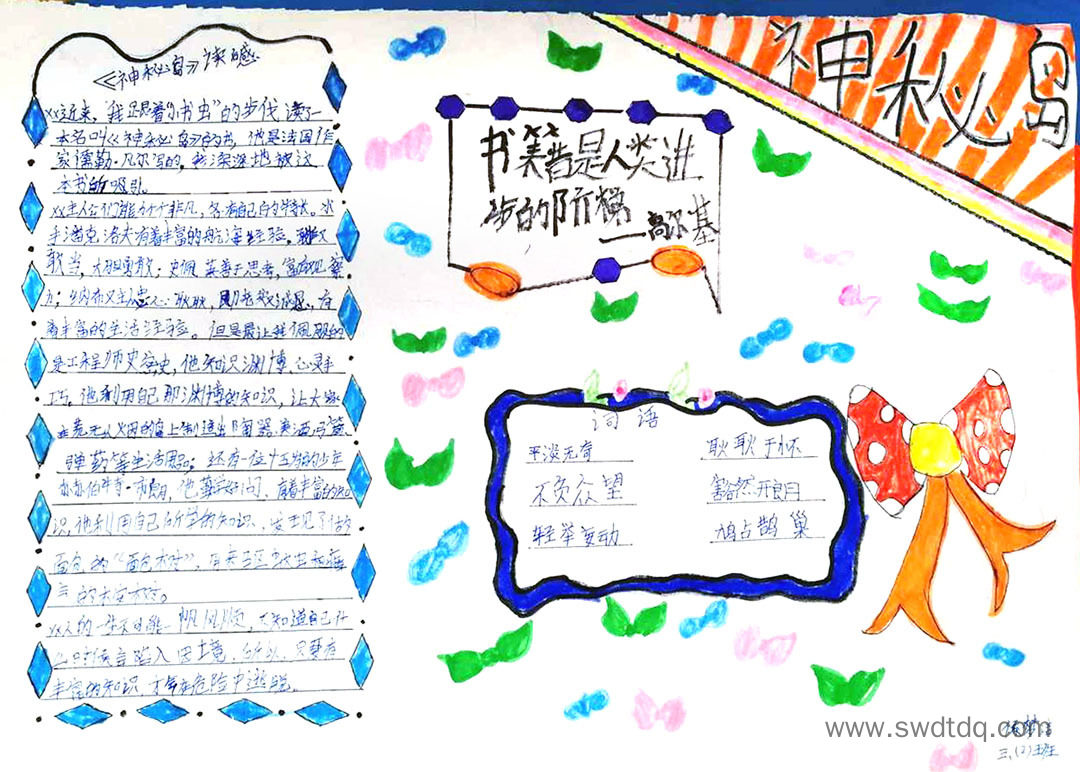 神秘岛
《神秘岛》读感
xx近来，我跟着"小书虫"的步伐读了一
本名叫《神秘岛》的书，他是法国作
家儒勒·凡尔写的，我深深地被这
本书所吸引。
xx主人公们能力个个非凡，各有自己的特长。水
手潘克洛夫有着丰富的航海经验，
敢当，大胆勇敢；史佩莱善于思考，富有观察
力；纳布又忠心耿耿，
着丰富的生活经验。但是最让我佩服的
是工程师史密史，他知识渊博，心灵手
巧，他利用自己那渊博的知识，让大家
弹药等生活用品；还有一位十五岁的少年
他勤学好问，有着丰富的知
识，他利用自己所学的知识，发现了做
面包的"面包树"，
xx人的一生不可能一帆风顺，不知道自己什
么时候会陷入困境，所以，只要有
丰富的知识，才能在危险中逃脱。
书笑昔是人类进
步的阶梯
——高尔基
词语
平淡无奇 耿耿于怀
不负众望 豁然开朗
轻举妄动 鸠占鹊巢
www.swdtdq.com
三、(2)班